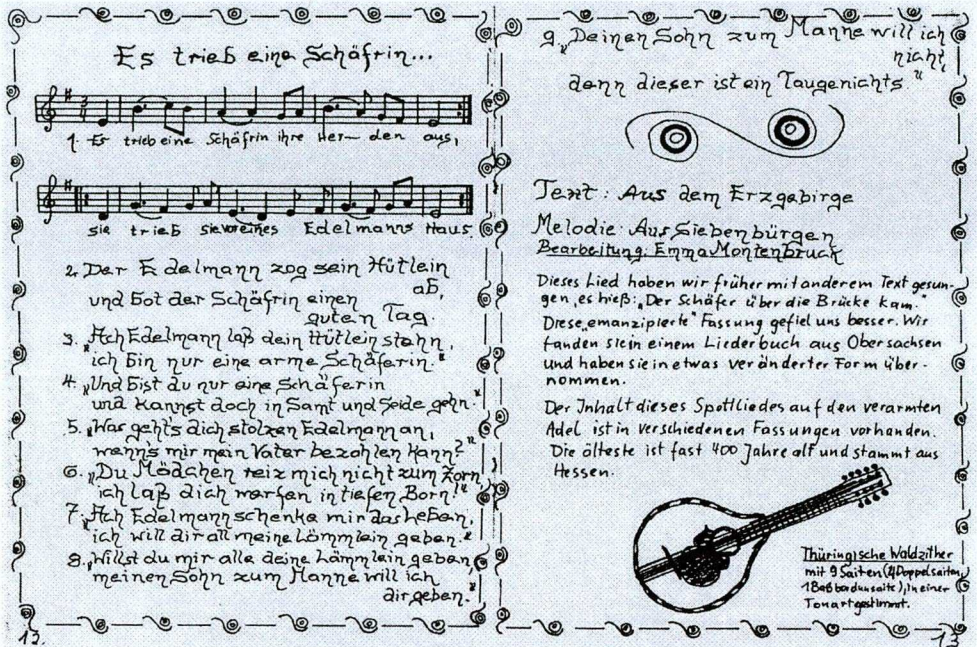 Es trieb eine Schäfrin...
1. Es trieb eine Schäfrin ihre Her— den aus,
sie trieb sie vor eines Edelmanns Haus.
2. Der Edelmann zog sein Hütlein
ab,
und bot der Schäfrin einen
guten Tag.
3. „Ach Edelmann laß dein Hütlein stehn,
ich bin nur eine arme Schäferin.“
4. „Und bist du nur eine Schäferin
und kannst doch in Samt und Seide gehn.“
5. „Was geht's dich stolzen Edelmann an,
wenn's mir mein Vater bezahlen kann?“
6. „Du Mädchen reiz mich nicht zum Zorn,
ich laß dich werfen in tiefen Born!“
7. „Ach Edelmann schenke mir das Leben,
ich will dir all meine Lämmlein geben.“
8. „Willst du mir alle deine Lämmlein geben,
meinen Sohn zum Manne will ich
dir geben.“
13.
9. „Deinen Sohn zum Manne will ich
nicht,
denn dieser ist ein Taugenichts.“
Text: Aus dem Erzgebirge
Melodie: Aus Siebenbürgen
Bearbeitung: Emma Montenbruck
Dieses Lied haben wir früher mit anderem Text gesun-
gen, es hieß: „Der Schäfer über die Brücke kam.“
Diese „emanzipierte“ Fassung gefiel uns besser. Wir
fanden sie in einem Liederbuch aus Obersachsen
und haben sie in etwas veränderter Form über-
nommen.
Der Inhalt dieses Spottliedes auf den verarmten
Adel ist in verschiedenen Fassungen vorhanden.
Die älteste ist fast 400 Jahre alt und stammt aus
Hessen.
Thüringische Waldzither
mit 9 Saiten (4 Doppelsaiten,
1 Baßbordunsaite), in einer
Tonart gestimmt.
13